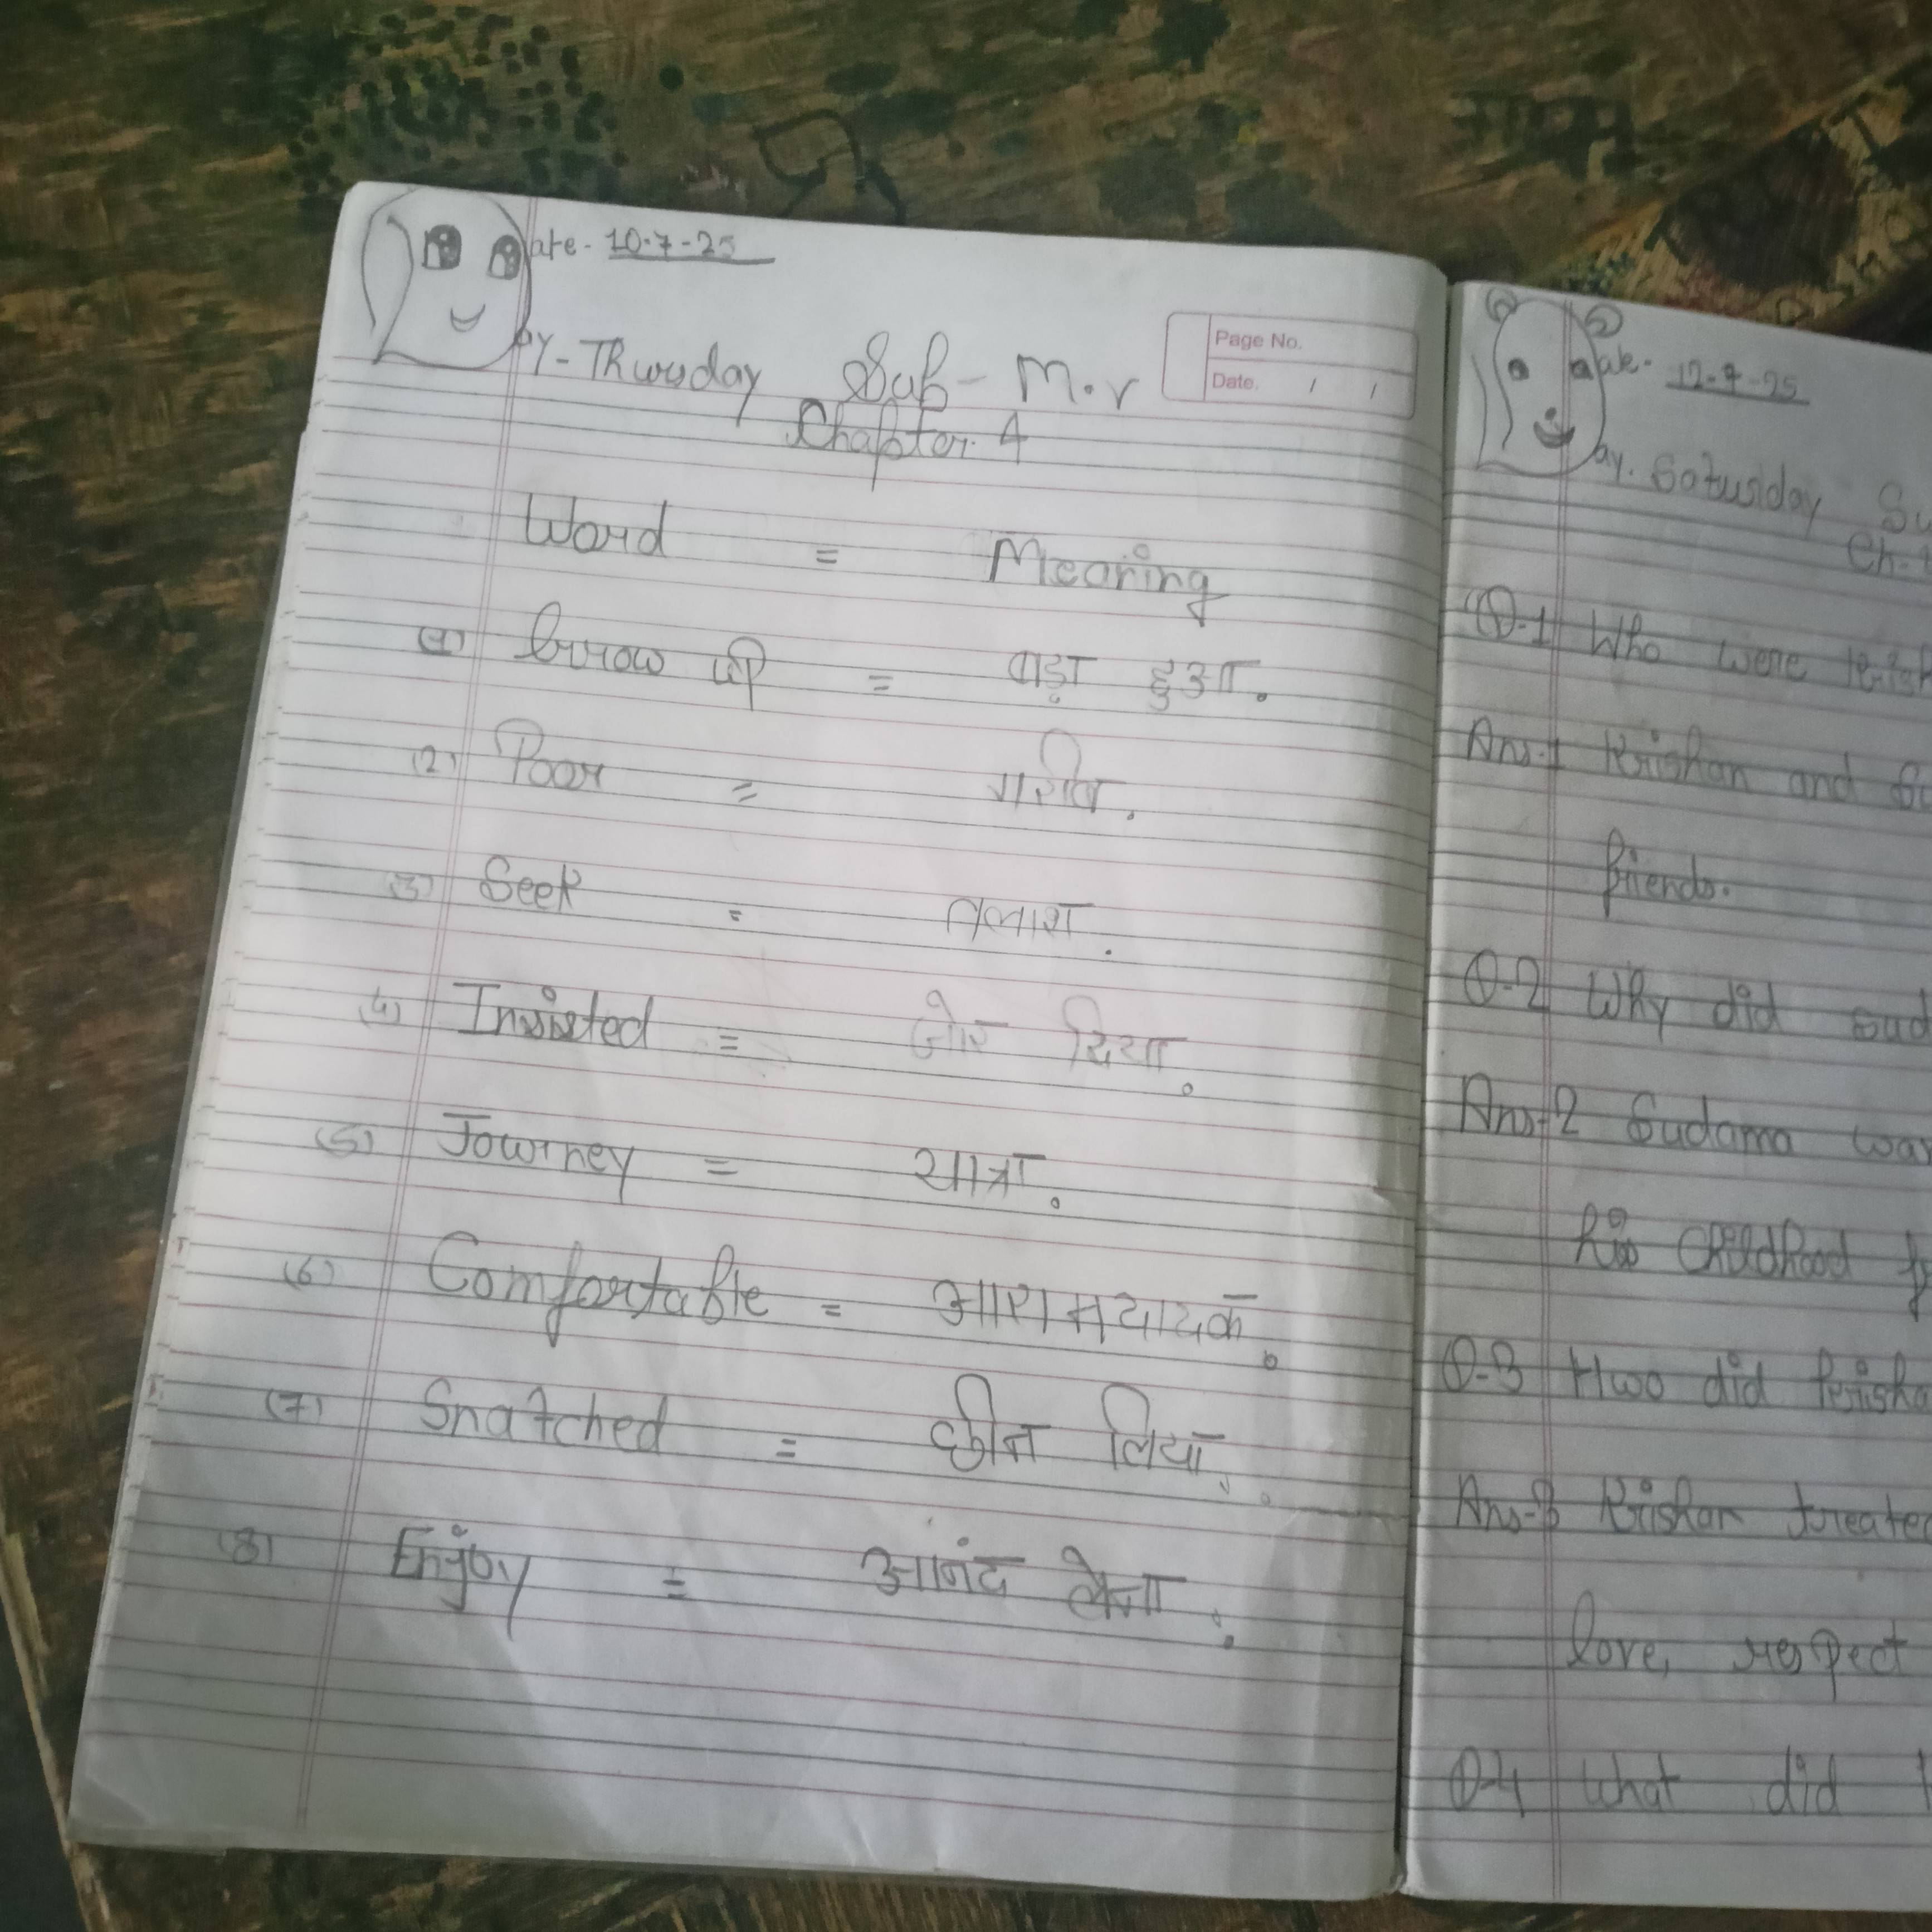 ate- 10-7-25
ay-Thwusday Sub- M.V
Chapter. 4
Page No.
Date. / /
Word = Meaning
(1) Grow up = वाड़ा हुआ.
(2) Poor = गरीब.
(3) Seek = तलाश.
(4) Insisted = जोर दिया.
(5) Journey = यात्रा.
(6) Comfortable = आरामदायक.
(7) Snatched = छीन लिया.
(8) Enjoy = आनंद लेना.
ate- 12-7-25
ay. Saturday
Ch-
Q-1 Who were
Ans-1 Krishan and
friends.
Q-2 Why did
Ans-2 Sudama
his childhood
Q-3 Hwo did
Ans-3 Krishan
love, respect
Q-4 What did